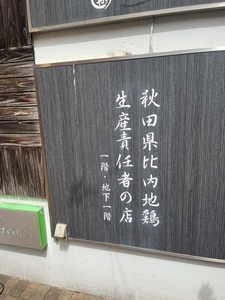 秋田県比内地鶏
生産責任者の店
一階・地下一階